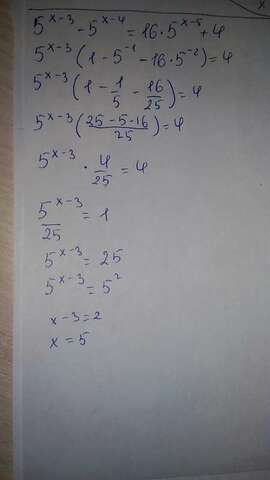 5^{x-3} - 5^{x-4} = 16·5^{x-5} + 4
5^{x-3} (1 - 5^{-1} - 16·5^{-2}) = 4
5^{x-3} (1 - 1/5 - 16/25) = 4
5^{x-3} ((25 - 5 - 16)/25) = 4
5^{x-3} · 4/25 = 4
5^{x-3}/25 = 1
5^{x-3} = 25
5^{x-3} = 5^2
x - 3 = 2
x = 5